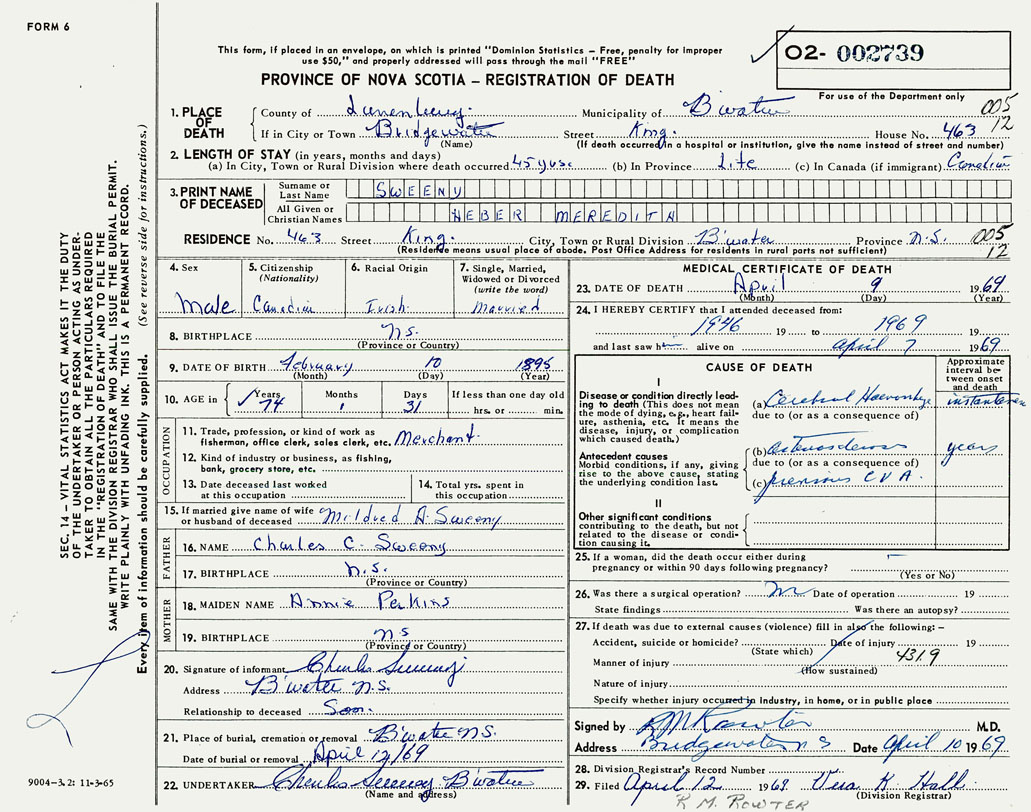 FORM 6
This form, if placed in an envelope, on which is printed "Dominion Statistics – Free, penalty for improper
use $50," and properly addressed will pass through the mail "FREE"
PROVINCE OF NOVA SCOTIA – REGISTRATION OF DEATH
02- 002739
For use of the Department only
005
12
1. PLACE OF DEATH
County of Lunenburg. Municipality of B'water
If in City or Town Bridgewater Street King. House No. 463
(Name) (If death occurred in a hospital or institution, give the name instead of street and number)
2. LENGTH OF STAY (in years, months and days)
(a) In City, Town or Rural Division where death occurred 45 yrs. (b) In Province Life (c) In Canada (if immigrant) Canadian
3. PRINT NAME OF DECEASED
Surname or Last Name SWEENY
All Given or Christian Names HEBER MEREDITH
RESIDENCE No. 463 Street King. City, Town or Rural Division B'water Province N.S. 005
(Residence means usual place of abode. Post Office Address for residents in rural parts not sufficient) 12
4. Sex
Male
5. Citizenship
(Nationality)
Canadian
6. Racial Origin
Irish
7. Single, Married,
Widowed or Divorced
(write the word)
Married
8. BIRTHPLACE N.S.
(Province or Country)
9. DATE OF BIRTH February 10 1895
(Month) (Day) (Year)
10. AGE in Years Months Days If less than one day old
74 1 31 hrs. or min.
OCCUPATION
11. Trade, profession, or kind of work as
fisherman, office clerk, sales clerk, etc. Merchant.
12. Kind of industry or business, as fishing,
bank, grocery store, etc.
13. Date deceased last worked
at this occupation
14. Total yrs. spent in
this occupation
15. If married give name of wife
or husband of deceased Mildred A. Sweeny
FATHER
16. NAME Charles C. Sweeny
17. BIRTHPLACE N.S.
(Province or Country)
MOTHER
18. MAIDEN NAME Annie Perkins
19. BIRTHPLACE NS
(Province or Country)
20. Signature of informant Charles Sweeny
Address B'water N.S.
Relationship to deceased Son.
21. Place of burial, cremation or removal B'water N.S.
Date of burial or removal April 12/69
22. UNDERTAKER Charles Sweeny B'water
(Name and address)
MEDICAL CERTIFICATE OF DEATH
23. DATE OF DEATH April 9 1969
(Month) (Day) (Year)
24. I HEREBY CERTIFY that I attended deceased from:
1946 19 to 1969 19
and last saw h alive on April 7 1969
CAUSE OF DEATH
Approximate
interval be-
tween onset
and death
I
Disease or condition directly lead-
ing to death (This does not mean
the mode of dying, e.g., heart fail-
ure, asthenia, etc. It means the
disease, injury, or complication
which caused death.)
(a) Cerebral Haemorrhage
due to (or as a consequence of)
Antecedent causes
Morbid conditions, if any, giving
rise to the above cause, stating
the underlying condition last.
(b) years
due to (or as a consequence of)
(c) previous CVA.
II
Other significant conditions
contributing to the death, but not
related to the disease or condi-
tion causing it.
25. If a woman, did the death occur either during
pregnancy or within 90 days following pregnancy?
(Yes or No)
26. Was there a surgical operation? Date of operation 19
State findings Was there an autopsy?
27. If death was due to external causes (violence) fill in also the following: –
Accident, suicide or homicide? Date of injury 19
(State which) 431.9
Manner of injury
(How sustained)
Nature of injury
Specify whether injury occurred in industry, in home, or in public place
Signed by RM Rowter M.D.
Address Bridgewater N S Date April 10 1969
28. Division Registrar's Record Number
29. Filed April 12 1969 Vera K Hall
(Division Registrar)
R. M. ROWTER
9004–3.2: 11-3-65
SEC. 14 – VITAL STATISTICS ACT MAKES IT THE DUTY
OF THE UNDERTAKER OR PERSON ACTING AS UNDER-
TAKER TO OBTAIN ALL THE PARTICULARS REQUIRED
IN THE "REGISTRATION OF DEATH" AND TO FILE THE
SAME WITH THE DIVISION REGISTRAR WHO SHALL ISSUE THE BURIAL PERMIT.
WRITE PLAINLY WITH UNFADING INK. THIS IS A PERMANENT RECORD.
Every item of information should be carefully supplied. (See reverse side for instructions.)